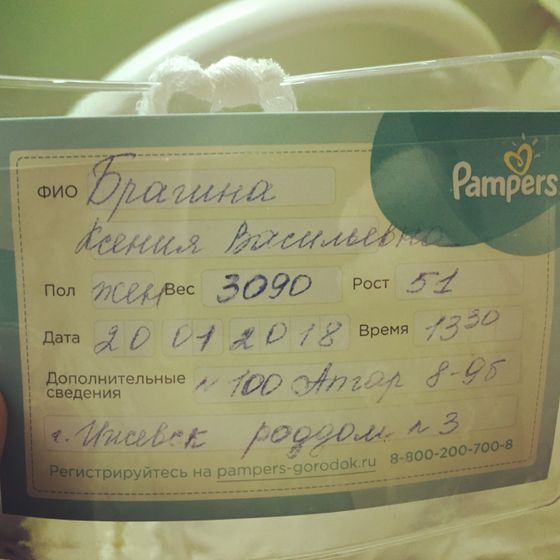 Pampers
ФИО Брагина
Ксения Васильевна
Пол жен Вес 3090 Рост 51
Дата 20 01 2018 Время 13 30
Дополнительные сведения №100 Апгар 8-9б
г. Ижевск роддом №3
Регистрируйтесь на pampers-gorodok.ru 8-800-200-700-8